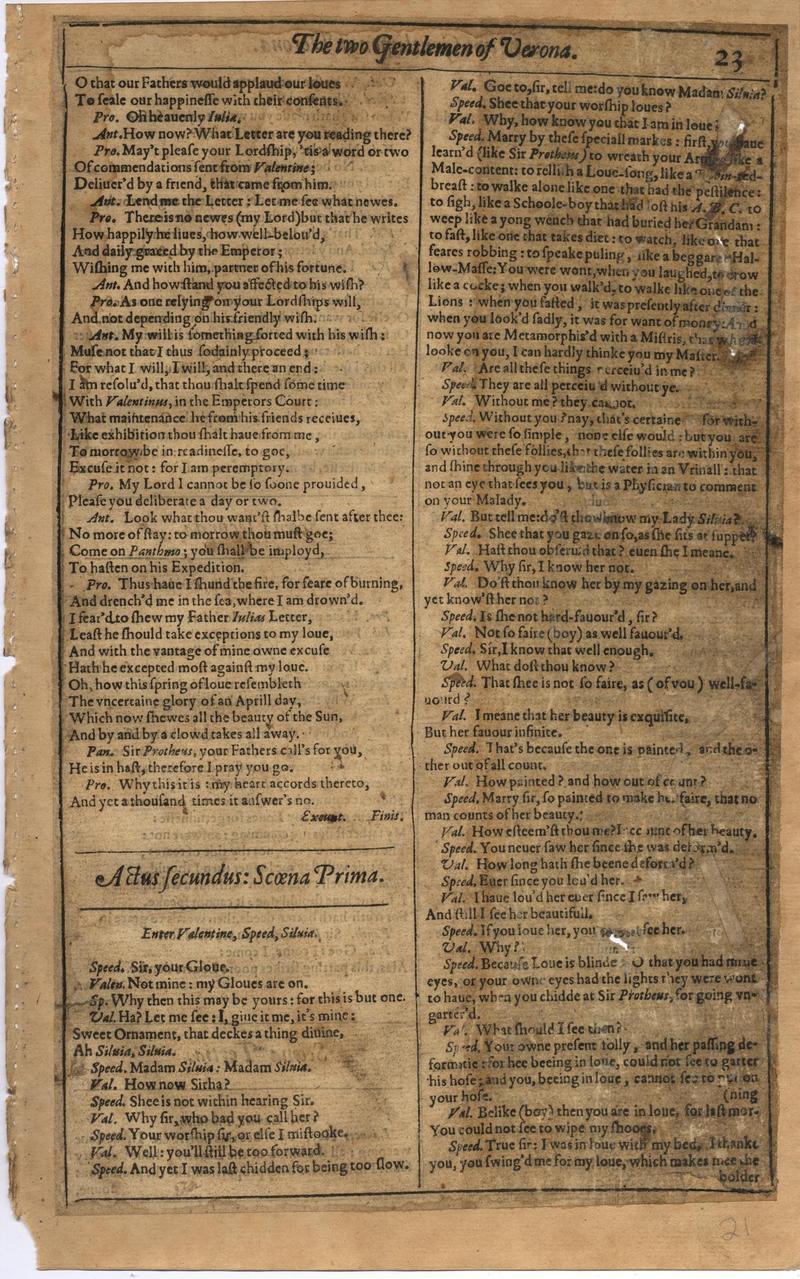 The two Gentlemen of Verona.
23
O that our Fathers would applaud our loues
To seale our happinesse with their consents.
Pro. Oh heauenly Iulia.
Ant. How now? What Letter are you reading there?
Pro. May't please your Lordship, 'tis a word or two
Of commendations sent from Valentine;
Deliuer'd by a friend, that came from him.
Ant. Lend me the Letter: Let me see what newes.
Pro. There is no newes (my Lord) but that he writes
How happily he liues, how well-belou'd,
And daily graced by the Emperor;
Wishing me with him, partner of his fortune.
Ant. And how stand you affected to his wish?
Pro. As one relying on your Lordships will,
And not depending on his friendly wish.
Ant. My will is something sorted with his wish:
Muse not that I thus sodainly proceed;
For what I will, I will, and there an end:
I am resolu'd, that thou shalt spend some time
With Valentinus, in the Emperors Court:
What maintenance he from his friends receiues,
Like exhibition thou shalt haue from me,
To morrow be in readinesse, to goe,
Excuse it not: for I am peremptory.
Pro. My Lord I cannot be so soone prouided,
Please you deliberate a day or two.
Ant. Look what thou want'st shalbe sent after thee:
No more of stay: to morrow thou must goe;
Come on Panthmo; you shall be imployd,
To hasten on his Expedition.
Pro. Thus haue I shund the fire, for feare of burning,
And drench'd me in the sea, where I am drown'd.
I fear'd to shew my Father Iulias Letter,
Least he should take exceptions to my loue,
And with the vantage of mine owne excuse
Hath he excepted most against my loue.
Oh, how this spring of loue resembleth
The vncertaine glory of an Aprill day,
Which now shewes all the beauty of the Sun,
And by and by a clowd takes all away.
Pan. Sir Protheus, your Fathers call's for you,
He is in hast, therefore I pray you go.
Pro. Why this it is: my heart accords thereto,
And yet a thousand times it answer's no.
Exeunt. Finis.
Actus secundus: Scœna Prima.
Enter Valentine, Speed, Siluia.
Speed. Sir, your Gloue.
Valen. Not mine: my Gloues are on.
Sp. Why then this may be yours: for this is but one.
Val. Ha? Let me see: I, giue it me, it's mine:
Sweet Ornament, that deckes a thing diuine,
Ah Siluia, Siluia.
Speed. Madam Siluia: Madam Siluia.
Val. How now Sirha?
Speed. Shee is not within hearing Sir.
Val. Why sir, who bad you call her?
Speed. Your worship sir, or else I mistooke.
Val. Well: you'll still be too forward.
Speed. And yet I was last chidden for being too slow.
Val. Goe to, sir, tell me: do you know Madam Siluia?
Speed. Shee that your worship loues?
Val. Why, how know you that I am in loue?
Speed. Marry by these speciall markes: first, you haue
learn'd (like Sir Protheus) to wreath your Armes like a
Male-content: to rellish a Loue-song, like a Robin-red-
breast: to walke alone like one that had the pestilence:
to sigh, like a Schoole-boy that had lost his A. B. C. to
weep like a yong wench that had buried her Grandam:
to fast, like one that takes diet: to watch, like one that
feares robbing: to speake puling, like a beggar at Hal-
low-Masse: You were wont, when you laughed, to crow
like a cocke; when you walk'd, to walke like one of the
Lions: when you fasted, it was presently after dinner:
when you look'd sadly, it was for want of money: And
now you are Metamorphis'd with a Mistris, that when I
looke on you, I can hardly thinke you my Master.
Val. Are all these things perceiu'd in me?
Speed. They are all perceiu'd without ye.
Val. Without me? they cannot.
Speed. Without you? nay, that's certaine for with-
out you were so simple, none else would: but you are
so without these follies, that these follies are within you,
and shine through you like the water in an Vrinall: that
not an eye that sees you, but is a Physician to comment
on your Malady.
Val. But tell me: do'st thou know my Lady Siluia?
Speed. Shee that you gaze on so, as she sits at supper?
Val. Hast thou obseru'd that? euen she I meane.
Speed. Why sir, I know her not.
Val. Do'st thou know her by my gazing on her, and
yet know'st her not?
Speed. Is she not hard-fauour'd, sir?
Val. Not so faire (boy) as well fauour'd.
Speed. Sir, I know that well enough.
Val. What dost thou know?
Speed. That shee is not so faire, as (of you) well-fa-
uourd?
Val. I meane that her beauty is exquisite,
But her fauour infinite.
Speed. That's because the one is painted, and the o-
ther out of all count.
Val. How painted? and how out of count?
Speed. Marry sir, so painted to make her faire, that no
man counts of her beauty.
Val. How esteem'st thou me? I account of her beauty.
Speed. You neuer saw her since she was deform'd.
Val. How long hath she beene deform'd?
Speed. Euer since you lou'd her.
Val. I haue lou'd her euer since I saw her,
And still I see her beautifull.
Speed. If you loue her, you cannot see her.
Val. Why?
Speed. Because Loue is blinde: O that you had mine
eyes, or your owne eyes had the lights they were wont
to haue, when you chidde at Sir Protheus, for going vn-
garter'd.
Val. What should I see then?
Speed. Your owne present folly, and her passing de-
formitie: for hee beeing in loue, could not see to garter
his hose; and you, beeing in loue, cannot see to put on
your hose. (ning
Val. Belike (boy) then you are in loue, for last mor-
You could not see to wipe my shooes.
Speed. True sir: I was in loue with my bed, I thanke
you, you swing'd me for my loue, which makes mee the
bolder
21